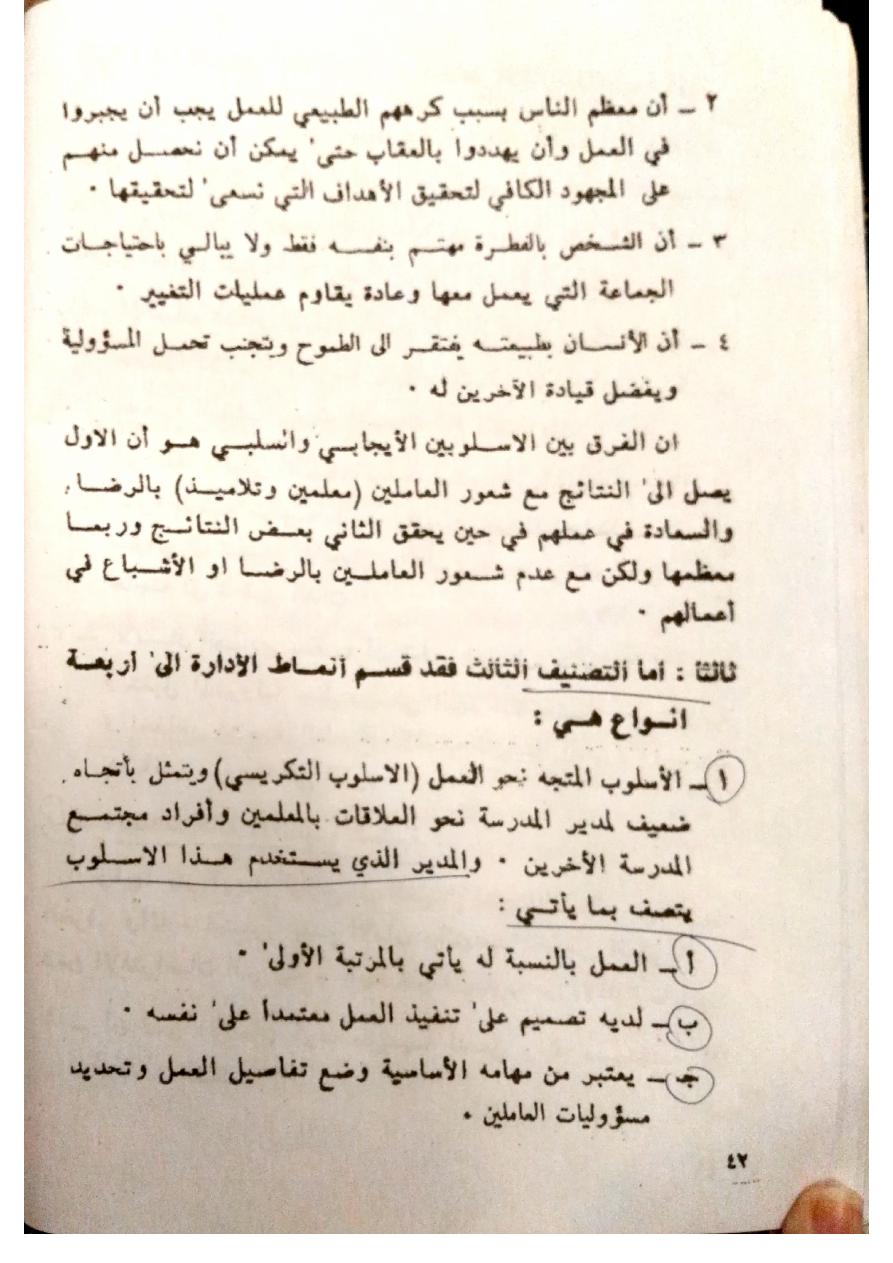 ٢ ــ أن معظم الناس بسبب كرههم الطبيعي للعمل يجب أن يجبروا
في العمل وأن يهددوا بالعقاب حتى' يمكن أن نحصـل منهـم
على المجهود الكافي لتحقيق الأهداف التي نسعى' لتحقيقها ٠
٣ ــ أن الشـخص بالفطـرة مهتـم بنفسـه فقط ولا يبالـي باحتياجـات
الجماعة التي يعمل معها وعادة يقاوم عمليات التغيير ٠
٤ ــ أن الأنسـان بطبيعتـه يفتقـر الى الطموح ويتجنب تحمـل المسؤولية
ويفضل قيادة الآخرين له ٠
ان الفرق بين الاسـلوبين الأيجابـي والسلبـي هـو أن الاول
يصل الى' النتائج مع شعور العاملين (معلمين وتلاميـذ) بالرضـاء
والسعادة في عملهم في حين يحقق الثاني بعـض النتائـج وربمـا
معظمها ولكن مع عدم شـعور العاملـين بالرضـا او الأشـباع في
أعمالهم ٠
ثالثاً : أما التصنيف الثالث فقد قسـم أنمـاط الأدارة الى' أربعـة
انـواع هـي :
١ــ الأسلوب المتجه نحو العمل (الاسلوب التكريسي) ويتمثل بأتجـاه
ضعيف لمدير المدرسة نحو العلاقات بالمعلمين وأفراد مجتمـع
المدرسة الأخرين ٠ والمدير الذي يسـتخدم هـذا الاسـلوب
يتصف بما يأتـي :
أ ــ العمل بالنسبة له يأتي بالمرتبة الأولى' ٠
ب ــ لديه تصميم على' تنفيذ العمل معتمداً على' نفسه ٠
جـ ــ يعتبر من مهامه الأساسية وضع تفاصيل العمل وتحديد
مسؤوليات العاملين ٠
٤٢